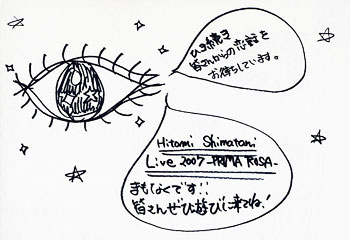 ひき続き
皆さんからの恋話を
お待ちしています。
Hitomi Shimatani
Live 2007 -PRIMA ROSA-
まもなくです!!
皆さんぜひ遊びに来てね!